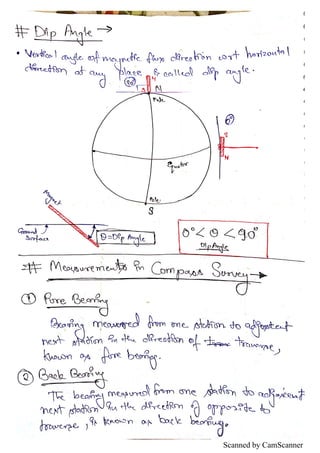 # Dip Angle →
• Vertical angle of magnetic flux direction w.r.t horizontal
direction at any place is called dip angle.
90°
N
Pole
0°
S
N
Equator
Pole
S
Magnet
Ground
Surface
θ = Dip Angle
0° < θ < 90°
Dip Angle
# Measurements in Compass Survey →
① Fore Bearing
Bearing measured from one station to adjacent
next station in the direction of traverse,
known as fore bearing.
② Back Bearing
The bearing measured from one station to adjacent
next station in the direction of opposite to
traverse, is known as back bearing.
Scanned by CamScanner